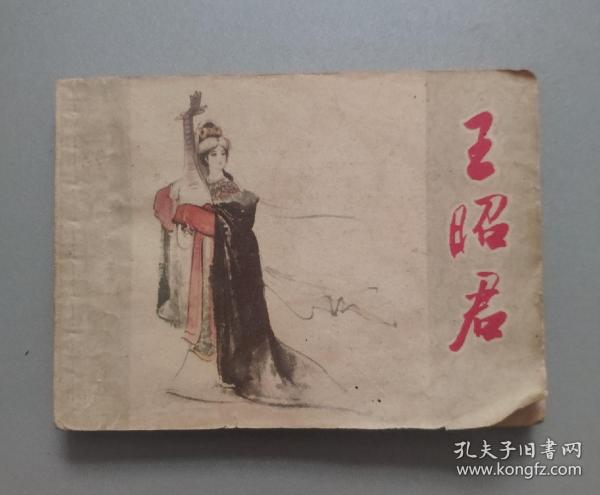 王昭君
孔夫子旧书网
www.kongfz.com